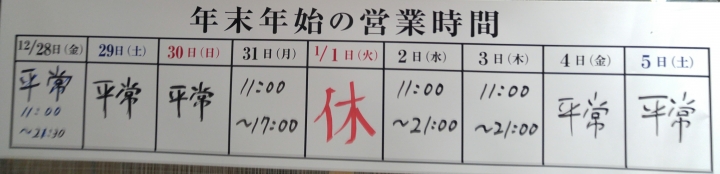 年末年始の営業時間
12/28日(金) 29日(土) 30日(日) 31日(月) 1/1日(火) 2日(水) 3日(木) 4日(金) 5日(土)
平常 平常 平常 11:00 休 11:00 11:00 平常 平常
11:00 ~17:00 ~21:00 ~21:00
~21:30